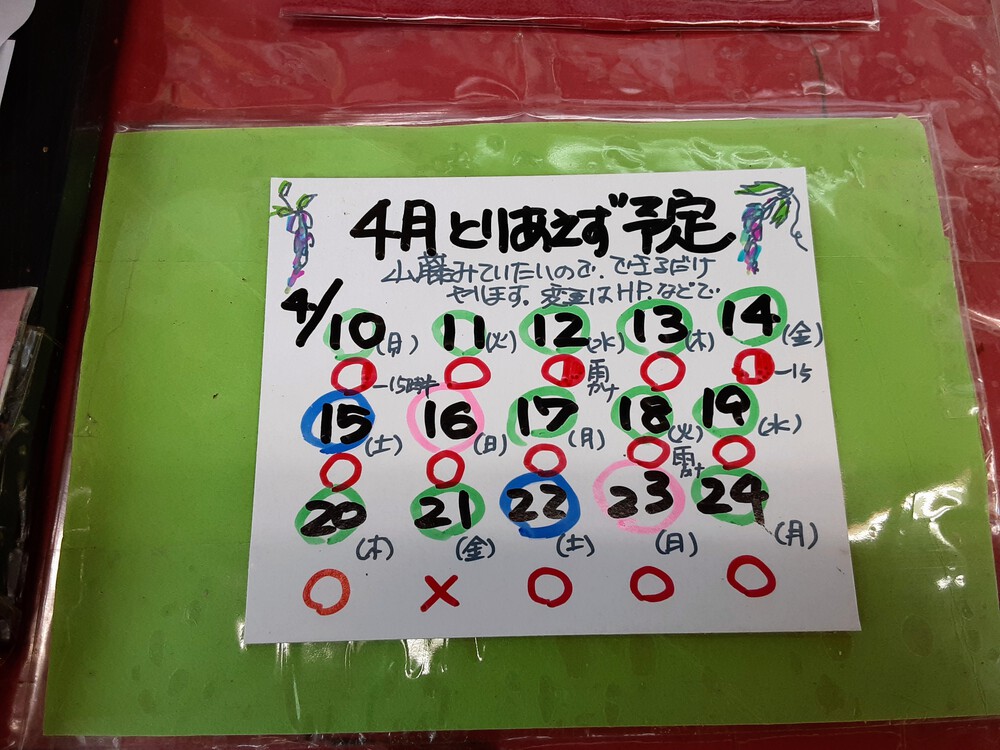 4月とりあえず予定
山藤みていたいので、できるだけ
やります。変更はHP.などで
4/10(月) 11(火) 12(水) 13(木) 14(金)
○–15時半 ○ 雨 ○ –15
15(土) 16(日) 17(月) 18(火) 19(水)
○ ○ ○ ○雨 ○
20(木) 21(金) 22(土) 23(日) 24(月)
○ × ○ ○ ○